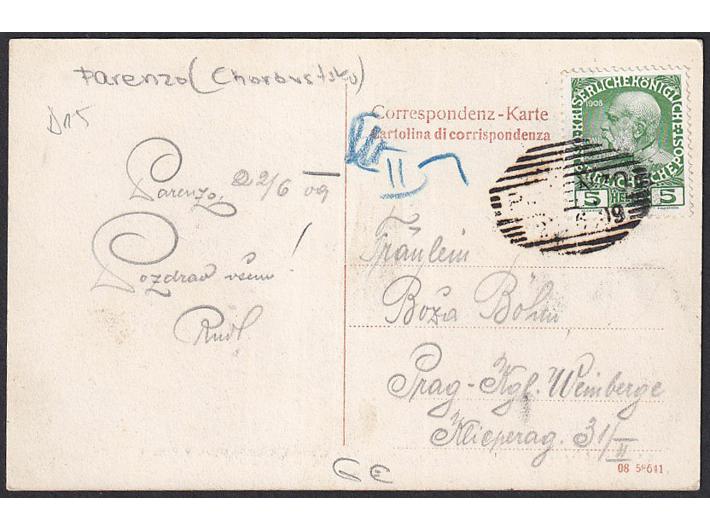 Parenzo (Chorvatsko)
D15
Correspondenz-Karte
Cartolina di corrispondenza
1908
KAISERLICHE KÖNIGLICHE
5 5
II
Parenzo, 22/6 09
Pozdrav všem!
Rudl
Fräulein
Boža Böhm
Prag - Kgl. Weinberge
Klieperag. 31/II
6E
08 58641